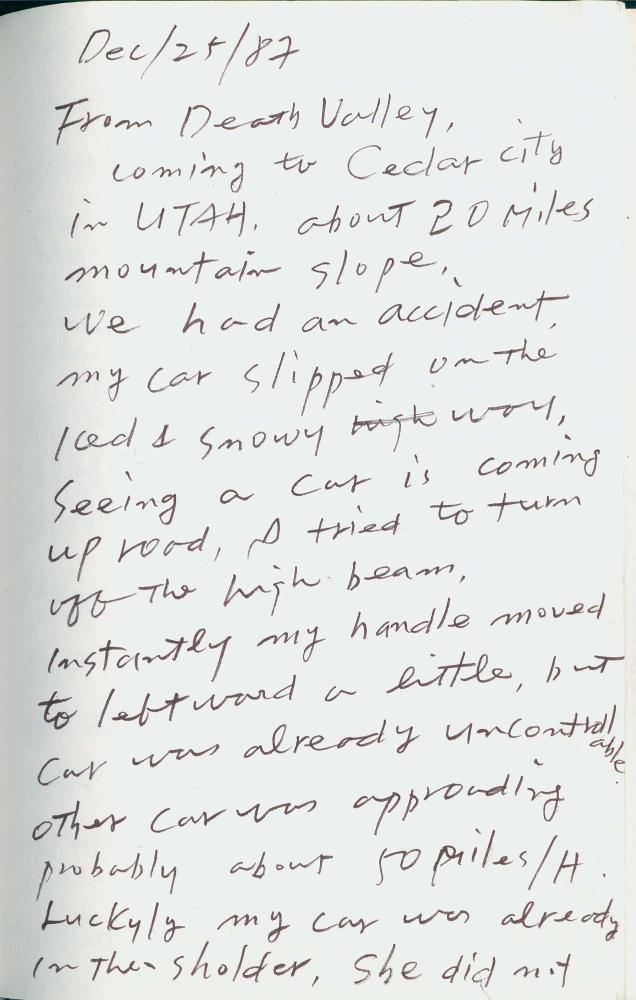 Dec/25/87
From Death Valley,
coming to Cedar city
in UTAH. about 20 Miles
mountain slope,
we had an accident,
my car slipped on the
Iced & snowy high way,
Seeing a car is coming
up road, I tried to turn
off the high beam,
instantly my handle moved
to leftward a little, but
car was already uncontrollable.
other car was approading
probably about 50 miles/H.
Luckyly my car was already
in the sholder, She did not